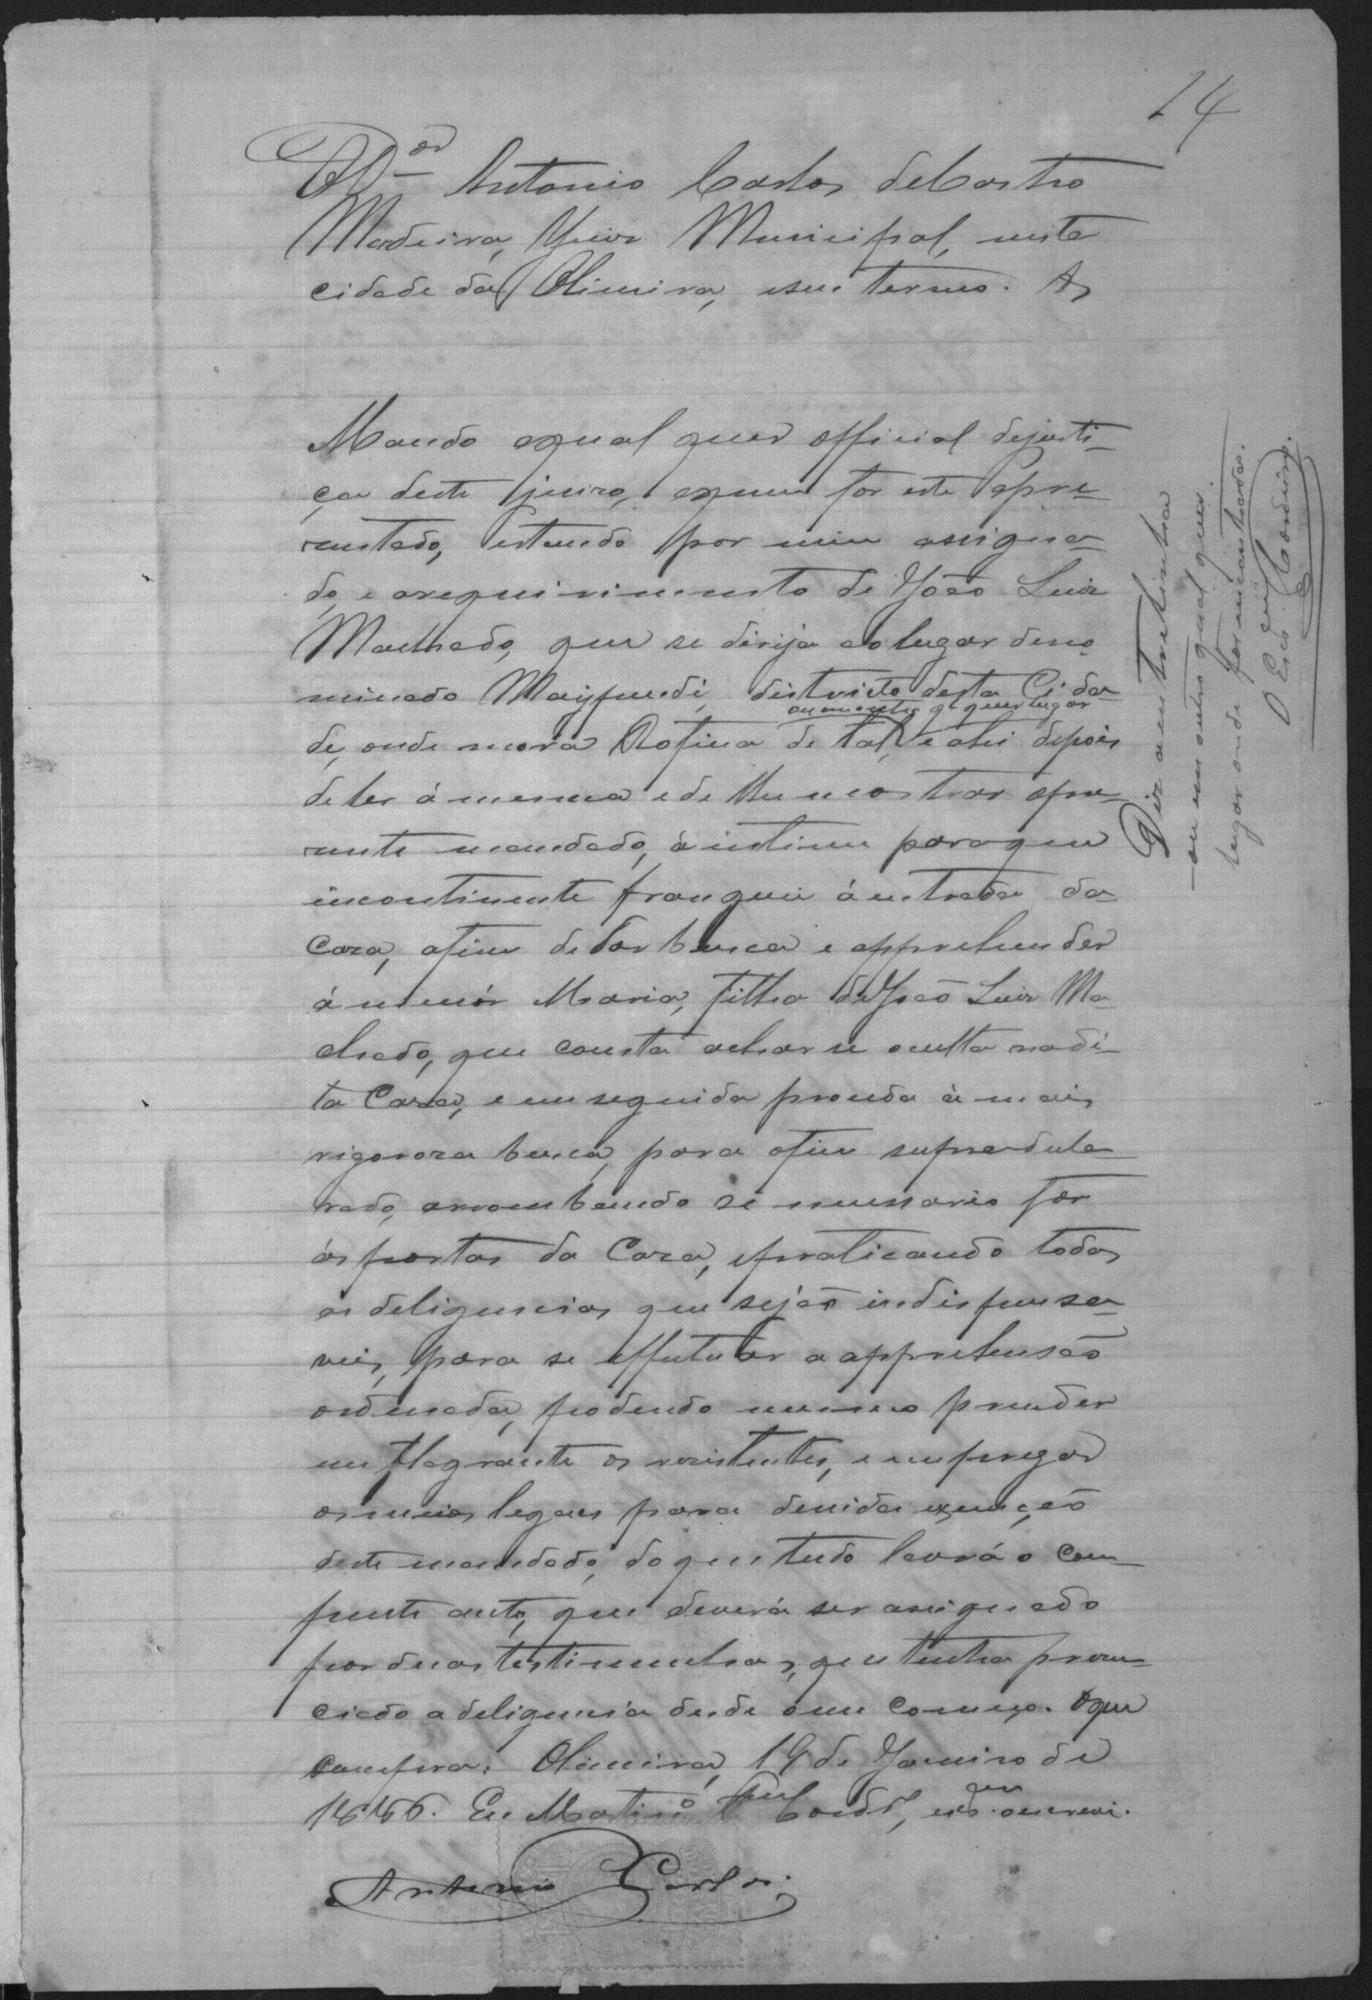 14
O Dor Antonio Carlos de Castro
Madeira, Juiz Municipal, nesta
cidade da Oliveira, e seu termo. &
Mando a qual quer official de justi-
ça deste juizo, a quem for este apre-
sentado, estando por mim assigna-
do, e a requirimento de João Luiz
Machado, que se dirija ao lugar deno
minado districto desta Cida-
ou em outro q. quer lugar
de, onde mora Rofina de tal, e ahi depois
de ler á mesma e de lhe mostrar o pre-
sente mandado, á intime para que
incontinente franquie á entrada da
Caza, afim de dar busca e apprehender
á menór Maria, filha de João Luiz Ma-
chado, que consta achar se oculta na di-
ta Caza, e em seguida proceda á mais
rigoroza busca, para o fim supra decla-
rado, arrombando se necessario for
ás portas da Caza, e praticando todas
as deligencias que sejão indispensa-
veis, para se effectuar a apprehensão
ordenada, podendo mesmo prender
em flagrante os rezistentes, e empregar
os meios legaes para devida execução
deste mandado, do que tudo lavrá o com-
petente auto, que deverá ser assignado
por duas testimunhas, que tenha prezen-
ciado a deligencia desde o seu começo. O que
cumpra. Oliveira, 19 de Janeiro de
1886. Eu Martin.o Cord.o, esc.am o escrevi.
Antonio Carlos.
Diz a entrelinha
- ou em outro qual quer
lugar onde for encontrada.
O Esc.am Cordeiro.